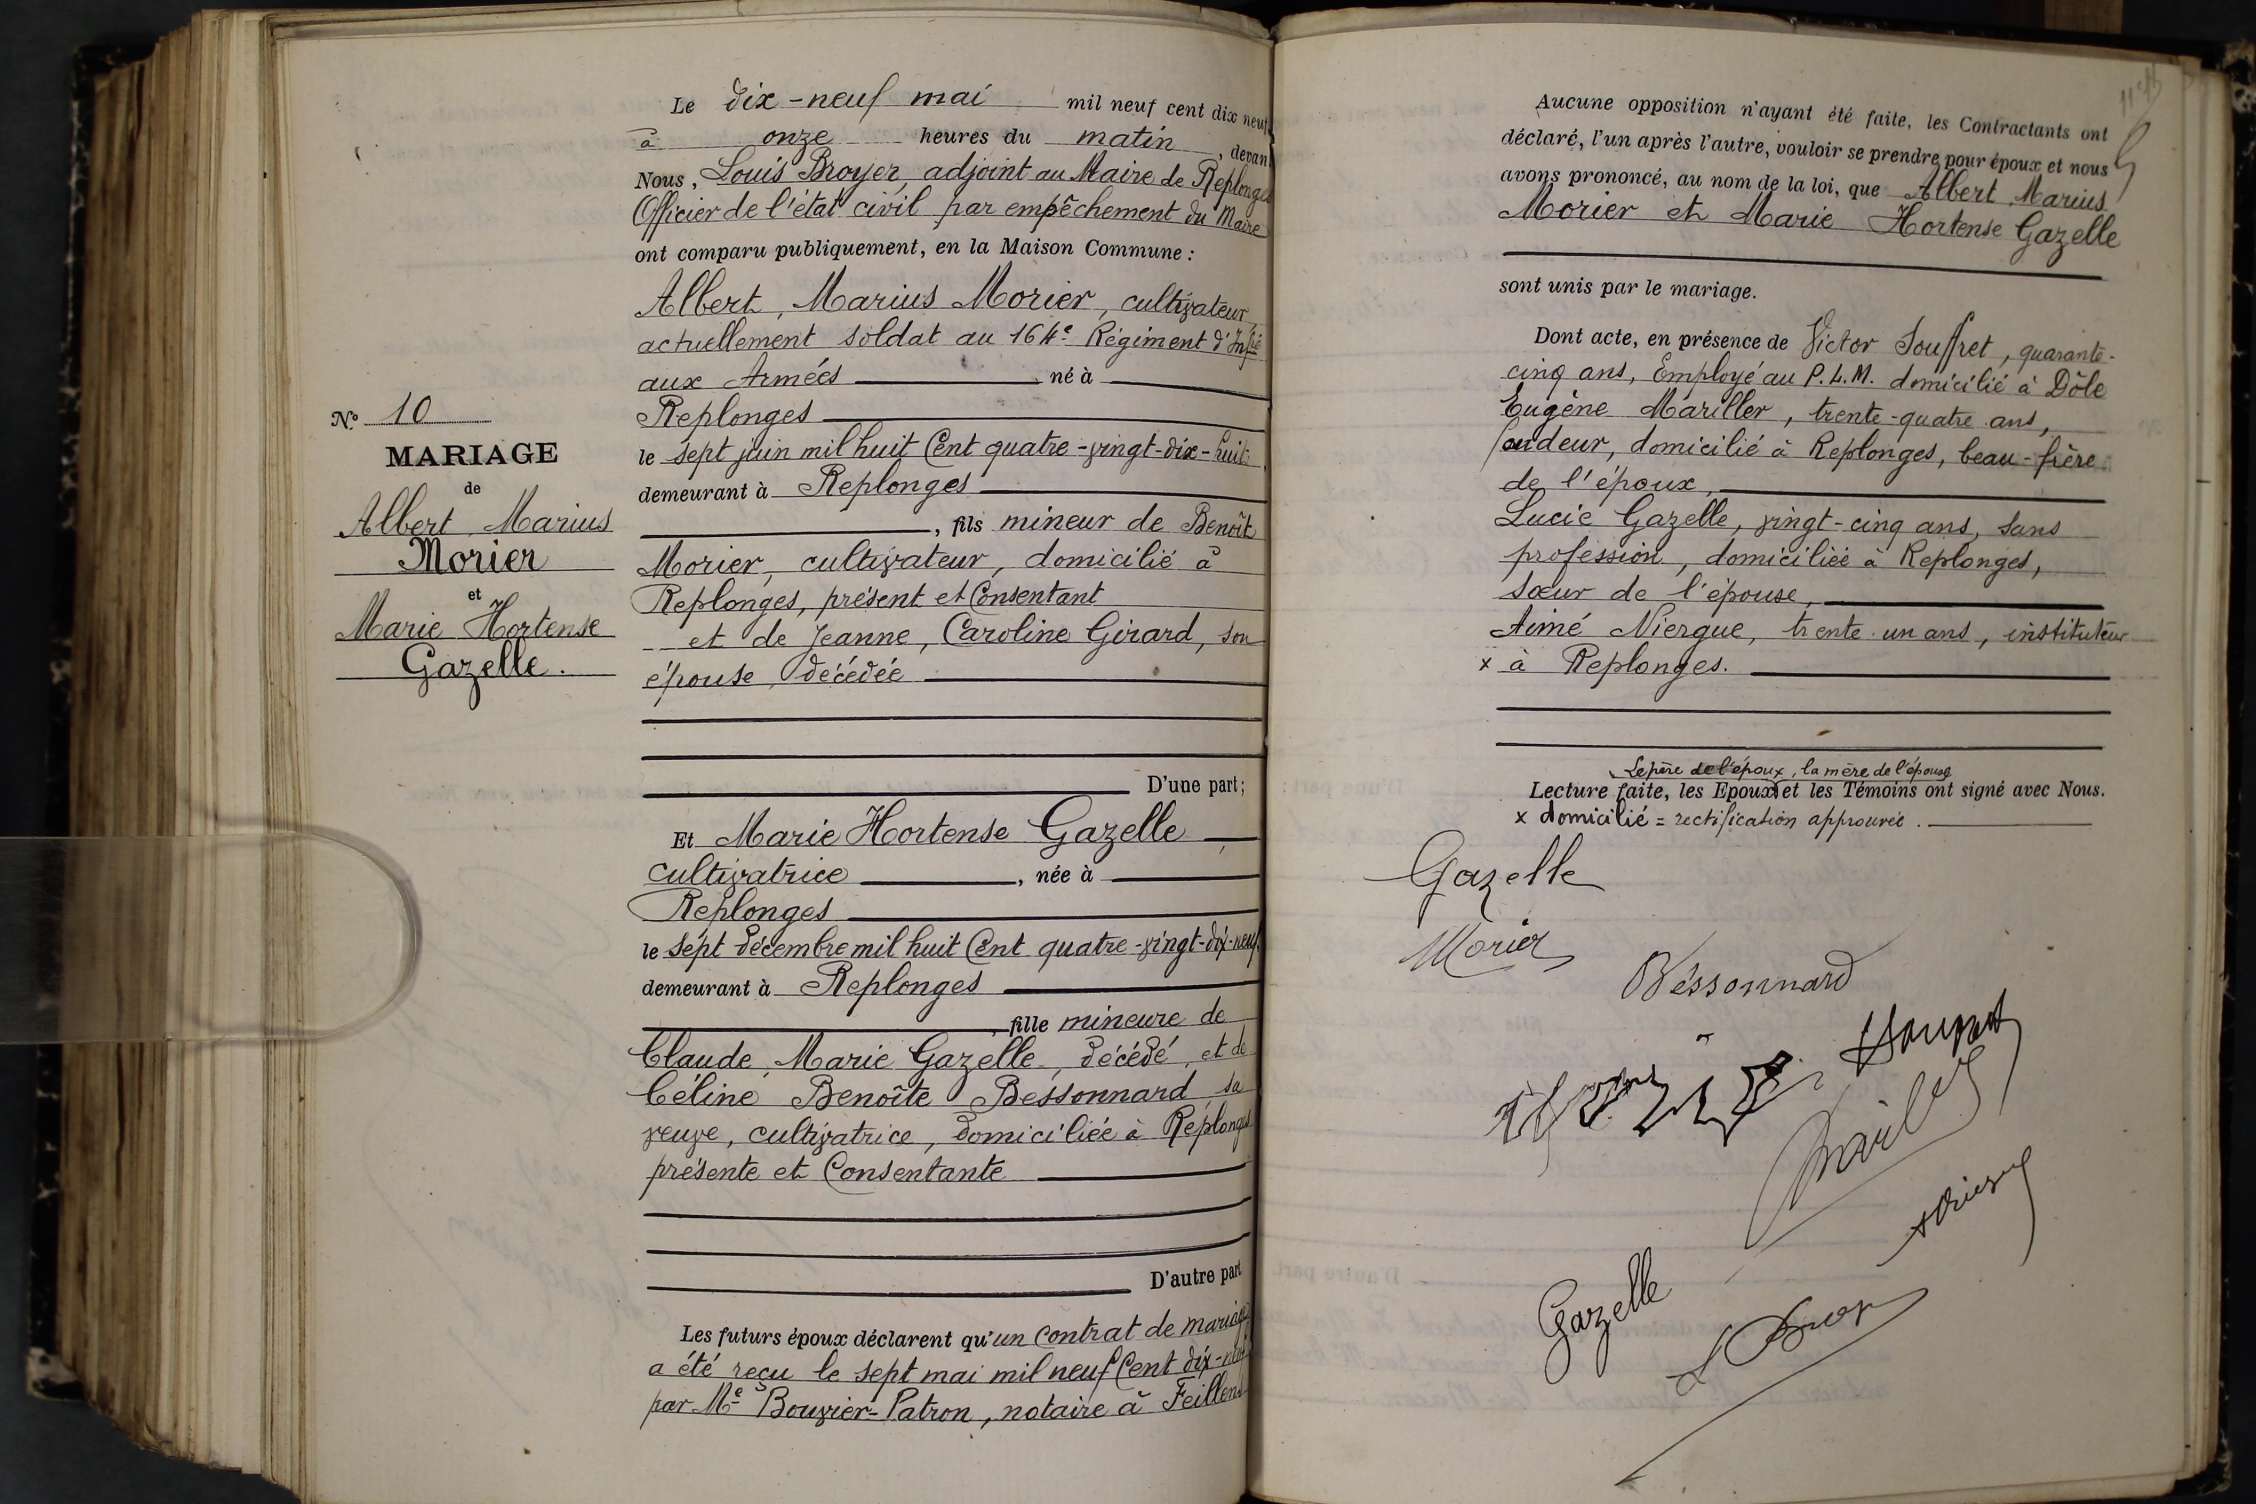 Le dix-neuf mai mil neuf cent dix neuf
à onze heures du matin, devant
Nous, Louis Broyer, adjoint au Maire de Replonges
Officier de l'état civil par empêchement du Maire
ont comparu publiquement, en la Maison Commune :
Albert, Marius Morier, cultivateur
actuellement soldat au 164e Régiment d'Infie
aux Armées né à
Replonges
le sept juin mil huit Cent quatre-vingt-dix-huit
demeurant à Replonges
, fils mineur de Benoît
Morier, cultivateur, domicilié à
Replonges, présent et Consentant
et de Jeanne, Caroline Girard, son
épouse décédée
D'une part;
No 10
MARIAGE
de
Albert Marius
Morier
et
Marie Hortense
Gazelle.
Et Marie Hortense Gazelle,
cultivatrice, née à
Replonges
le sept décembre mil huit Cent quatre-vingt-dix-neuf
demeurant à Replonges
, fille mineure de
Claude, Marie Gazelle, décédé, et de
Céline Benoîte Bessonnard, sa
veuve, cultivatrice, domiciliée à Replonges
présente et Consentante
D'autre part
Les futurs époux déclarent qu'un contrat de mariage
a été reçu le sept mai mil neuf Cent dix-neuf
par Me Bouvier-Patron, notaire à Feillens
Aucune opposition n'ayant été faite, les Contractants ont
déclaré, l'un après l'autre, vouloir se prendre pour époux et nous
avons prononcé, au nom de la loi, que Albert Marius
Morier et Marie Hortense Gazelle
sont unis par le mariage.
Dont acte, en présence de Victor Souffret, quarante-
cinq ans, Employé au P.L.M. domicilié à Dôle
Eugène Mariller, trente-quatre ans,
soudeur, domicilié à Replonges, beau-frère
de l'époux,
Lucie Gazelle, vingt-cinq ans, sans
profession, domiciliée à Replonges,
sœur de l'épouse,
Aimé Niergue, trente un ans, instituteur
x à Replonges.
Le père de l'époux, la mère de l'épouse
Lecture faite, les Epoux et les Témoins ont signé avec Nous.
x domicilié = rectification approuvée.
Gazelle
Morier
Bessonnard
Gazelle